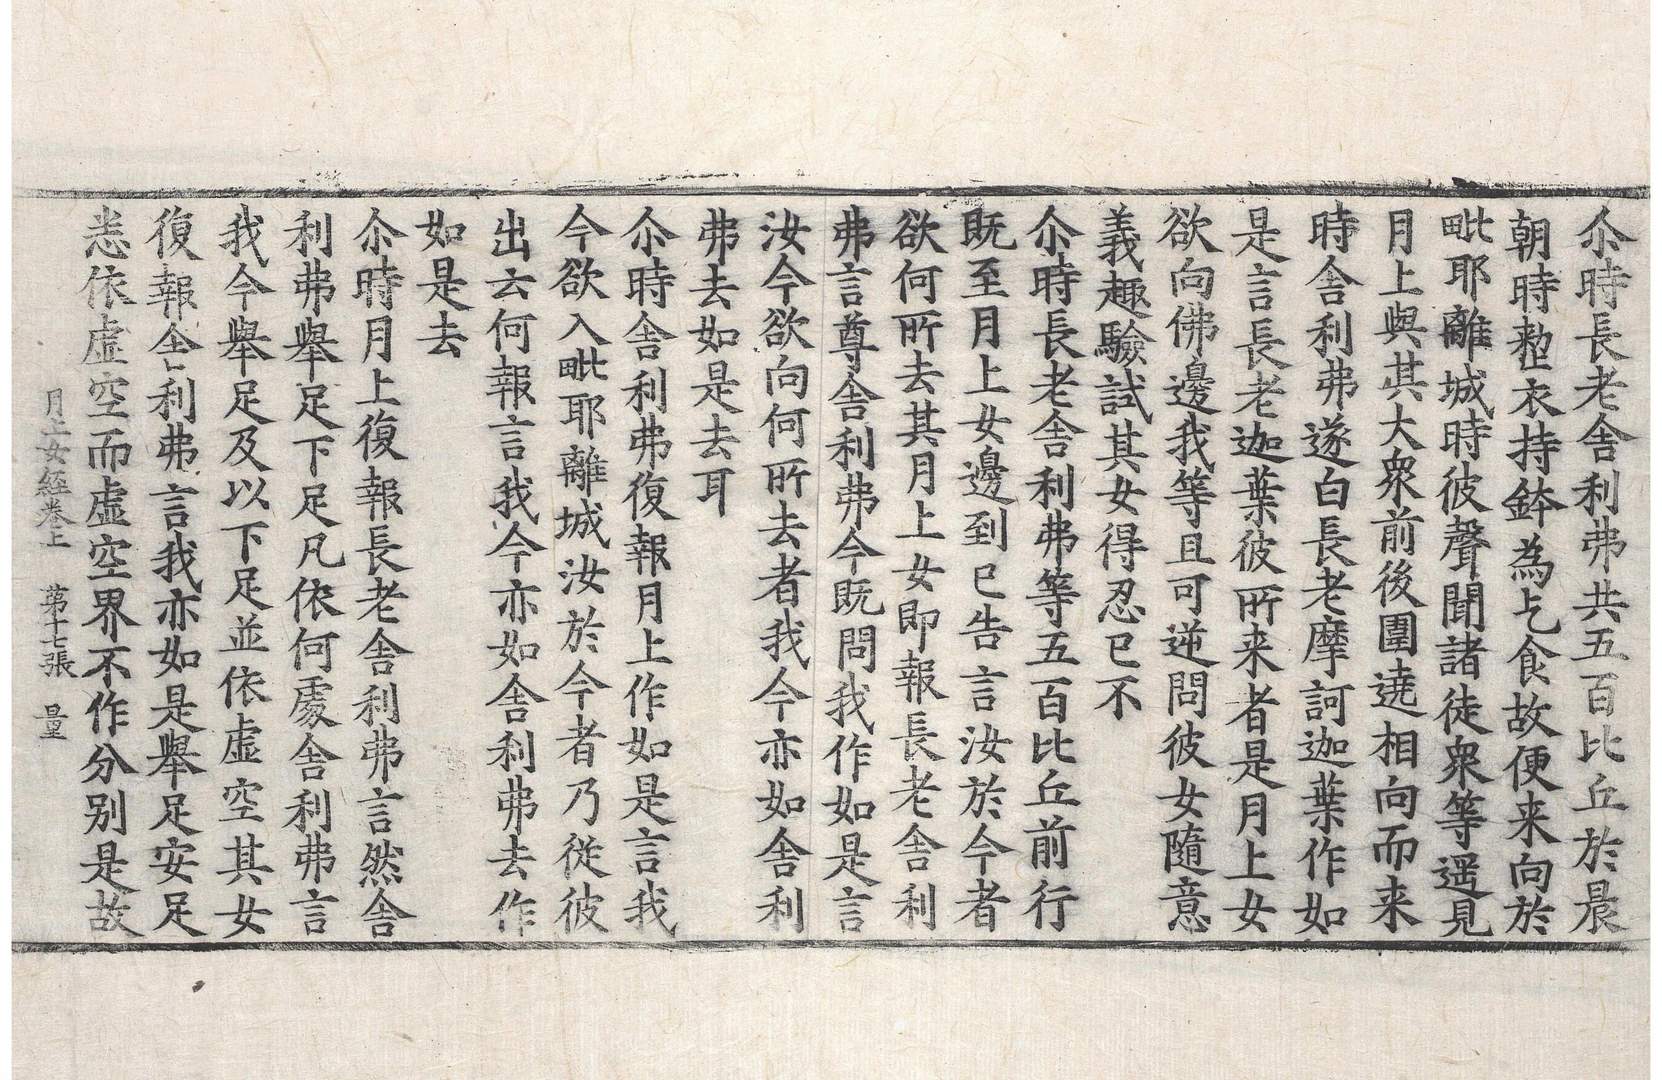 尒時長老舎利弗共五百比丘於晨
朝時整衣持鉢為乞食故便来向於
毗耶離城時彼聲聞諸徒衆等遥見
月上與其大衆前後圍遶相向而来
時舎利弗遂白長老摩訶迦葉作如
是言長老迦葉彼所来者是月上女
欲向佛邊我等且可逆問彼女隨意
義趣驗試其女得忍已不
尒時長老舎利弗等五百比丘前行
既至月上女邊到已告言汝於今者
欲何所去其月上女即報長老舎利
弗言尊舎利弗今既問我作如是言
汝今欲向何所去者我今亦如舎利
弗去如是去耳
尒時舎利弗復報月上作如是言我
今欲入毗耶離城汝於今者乃従彼
出云何報言我今亦如舎利弗去作
如是去
尒時月上復報長老舎利弗言然舎
利弗舉足下足凡依何處舎利弗言
我今舉足及以下足並依虛空其女
復報舎利弗言我亦如是舉足安足
悉依虛空而虛空界不作分別是故
月上女経卷上　第十七張　量